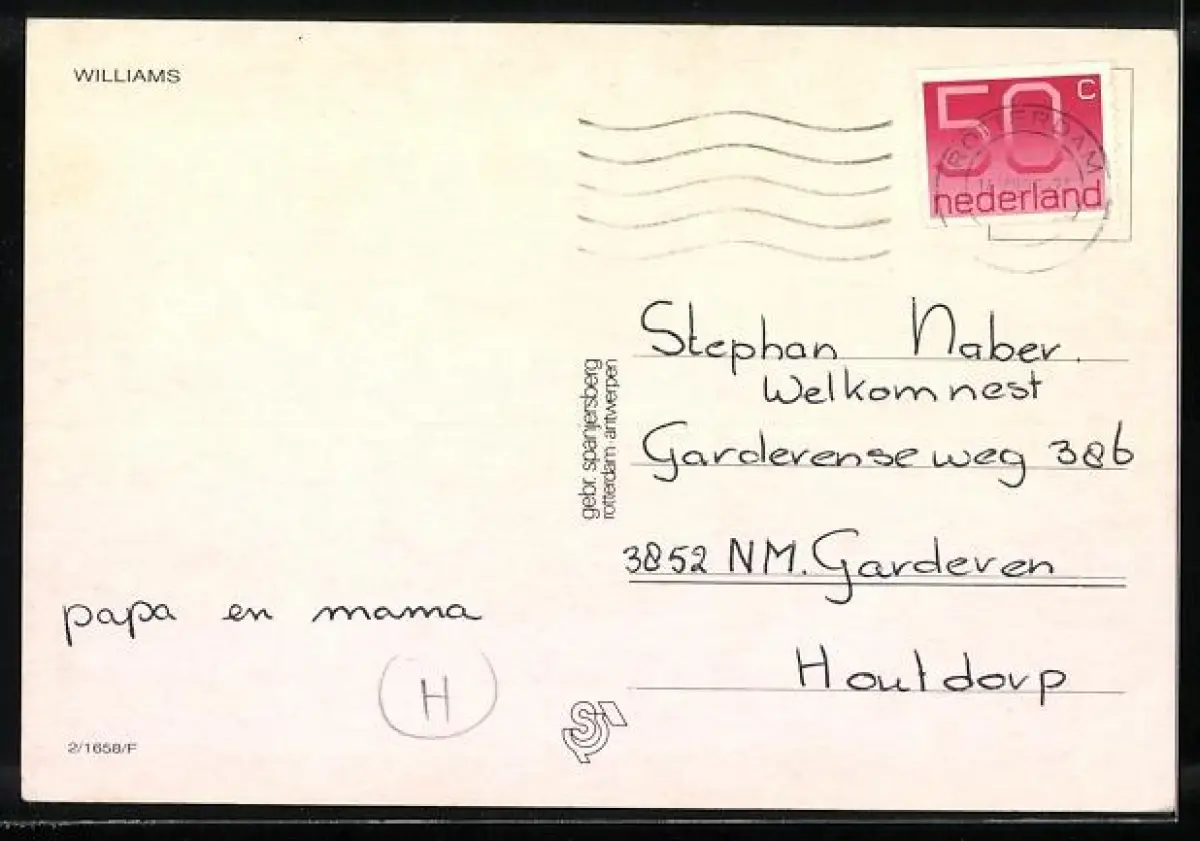 WILLIAMS
50 c
nederland
ROTTERDAM
gebr. spanjersberg
rotterdam-antwerpen
Stephan Naber.
Welkomnest
Garderenseweg 386
3852 NM. Garderen
Houtdorp
papa en mama
H
2/1658/F